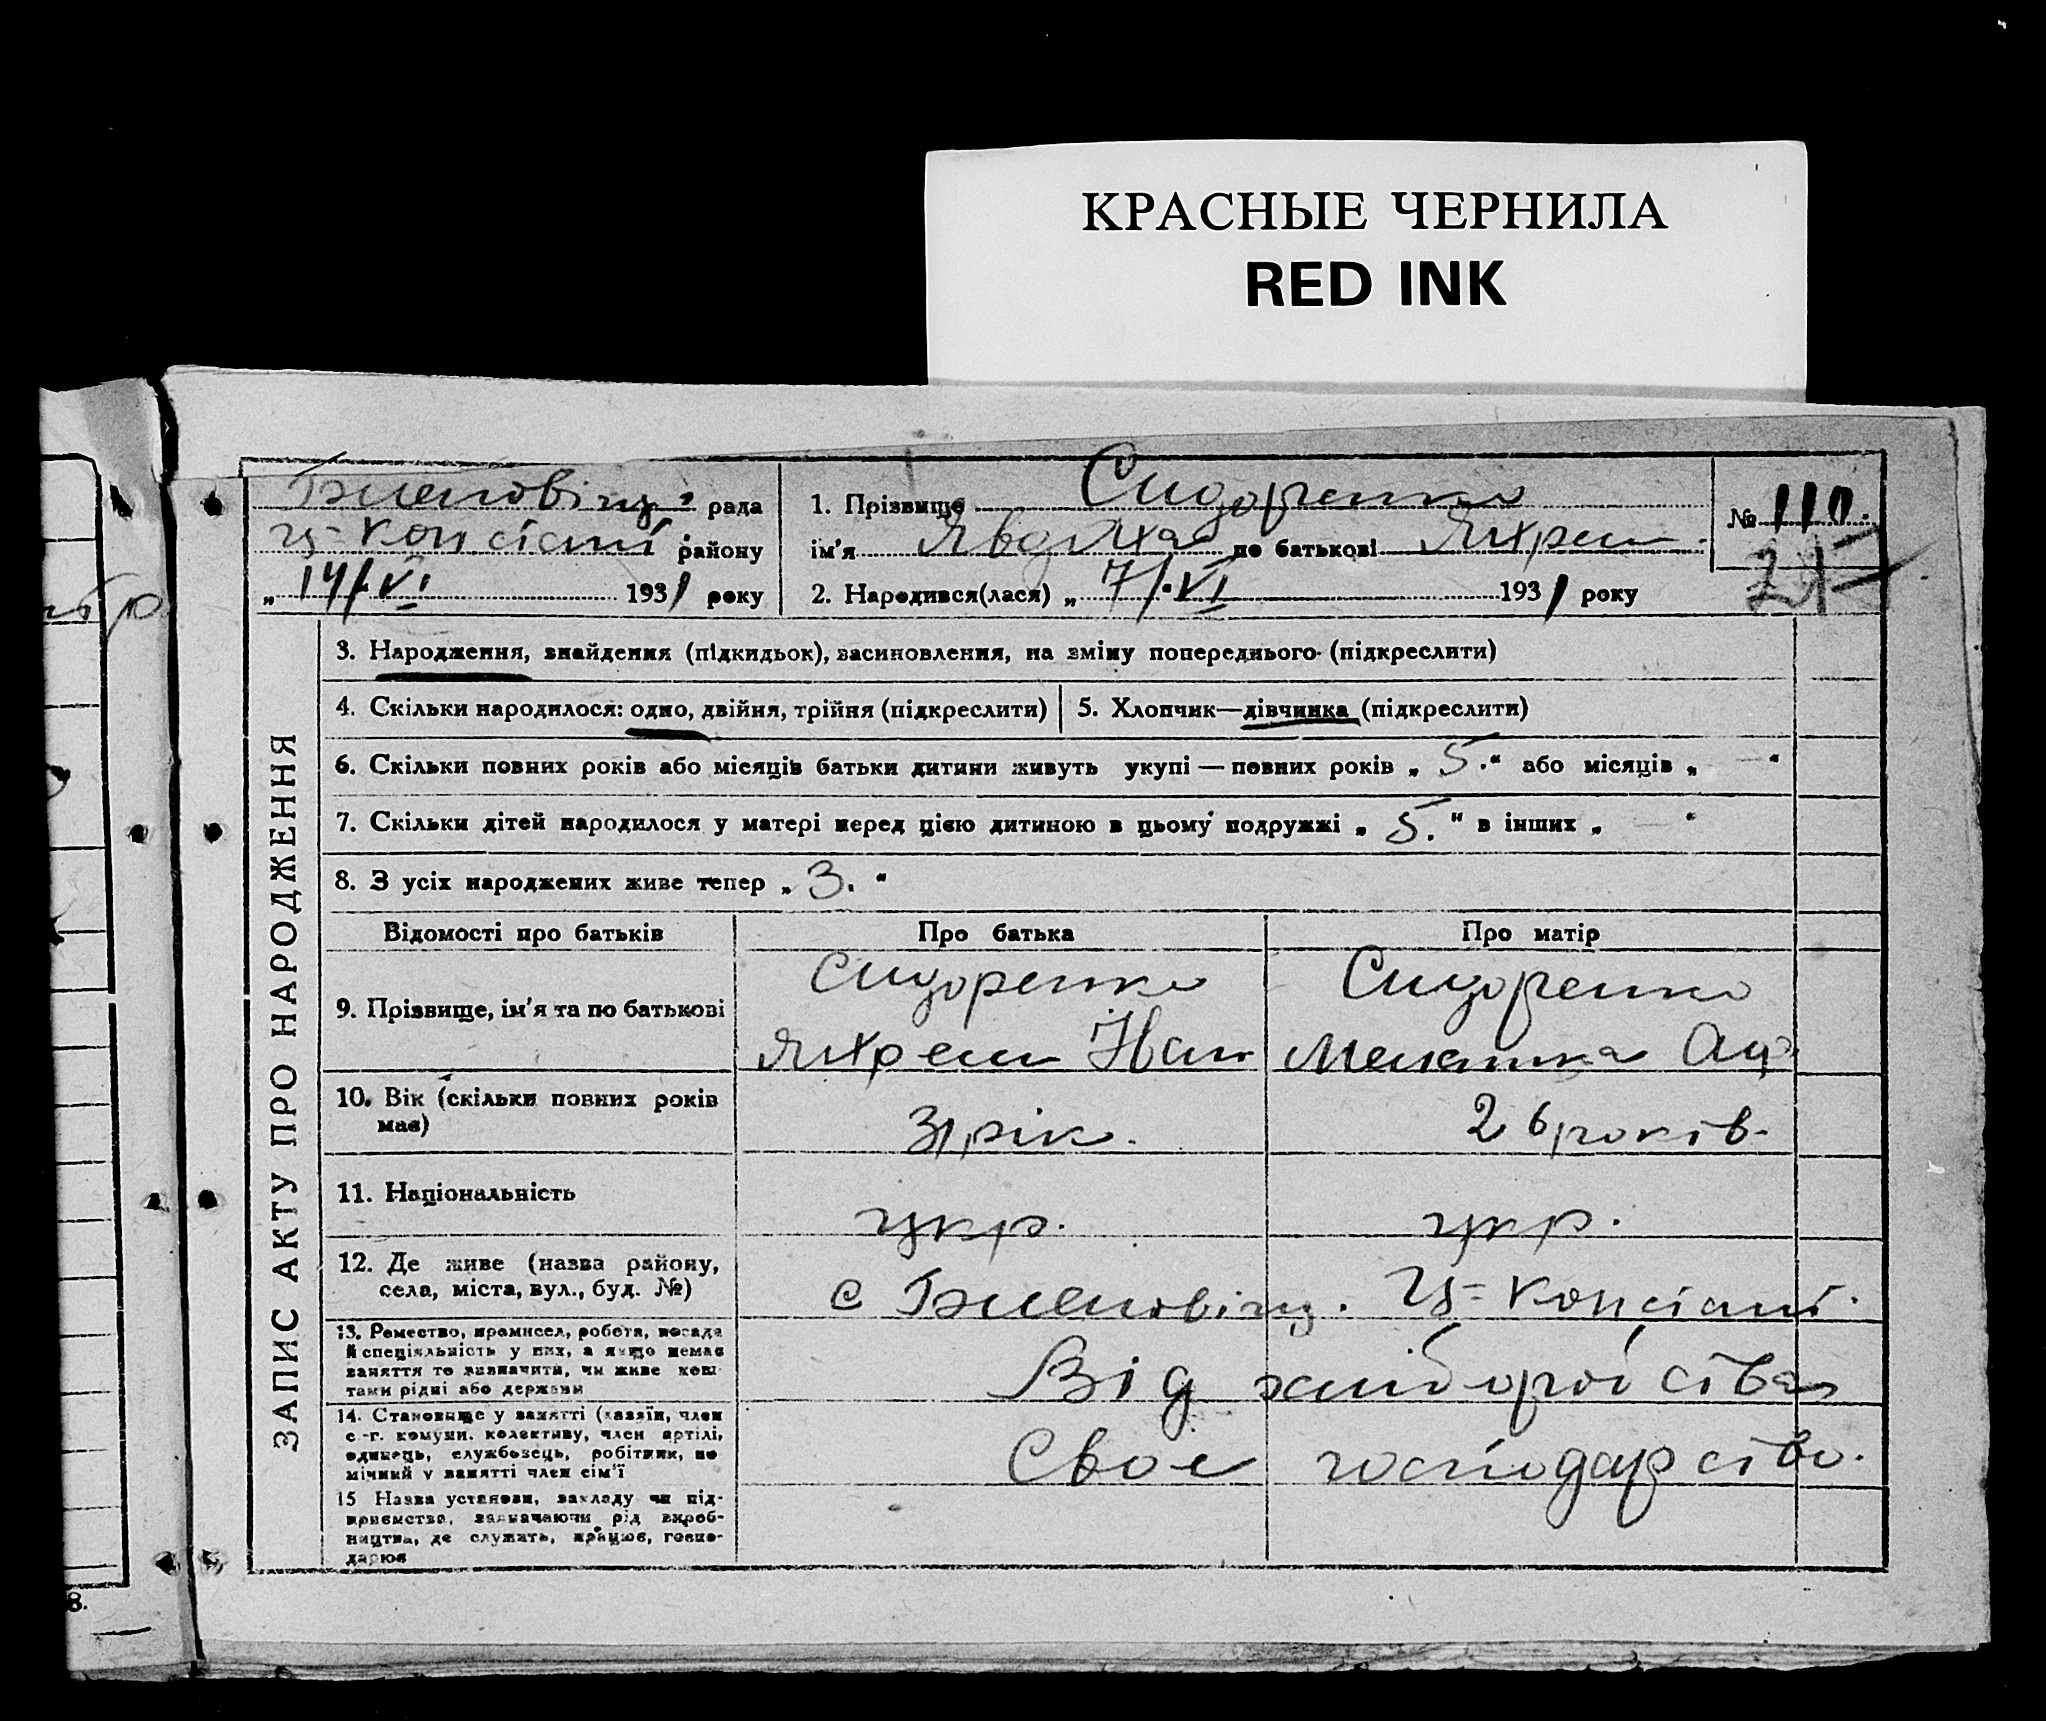 КРАСНЫЕ ЧЕРНИЛА
RED INK
рада
району
„ 14/VI 1931 року
1. Прізвище Сидоренко
ім'я Явдоха по батькові
2. Народився(лася) „ 7/VI 1931 року
№ 110.
ЗАПИС АКТУ ПРО НАРОДЖЕННЯ
3. Народження, знайдення (підкидьок), засиновлення, на зміну попереднього (підкреслити)
4. Скільки народилося: одно, двійня, трійня (підкреслити)
5. Хлопчик—дівчинка (підкреслити)
6. Скільки повних років або місяців батьки дитини живуть укупі — повних років „ 5. “ або місяців „ — “
7. Скільки дітей народилося у матері перед цією дитиною в цьому подружжі „ 5. “ в інших „ — “
8. З усіх народжених живе тепер „ 3. “
Відомості про батьків
Про батька
Про матір
9. Прізвище, ім'я та по батькові
Сидоренко
Сидоренко
10. Вік (скільки повних років
має)
31 рік.
26 років.
11. Національність
укр.
укр.
12. Де живе (назва району,
села, міста, вул., буд. №)
с
13. Ремество, промисел, робота, посада
й спеціяльність у них, а якщо немає
заняття то визначити, чи живе кош-
тами рідні або держави
Від хліборобства
14. Становище у занятті (хазяїн, член
с.-г. комуни, колективу, член артілі,
одинець, службовець, робітник, по
мічний у занятті член сім'ї
Своє господарство.
15 Назва установи, закладу чи під-
приємства, зазначаючи рід вироб-
ництва, де служить, працює, госпо-
дарює
8.